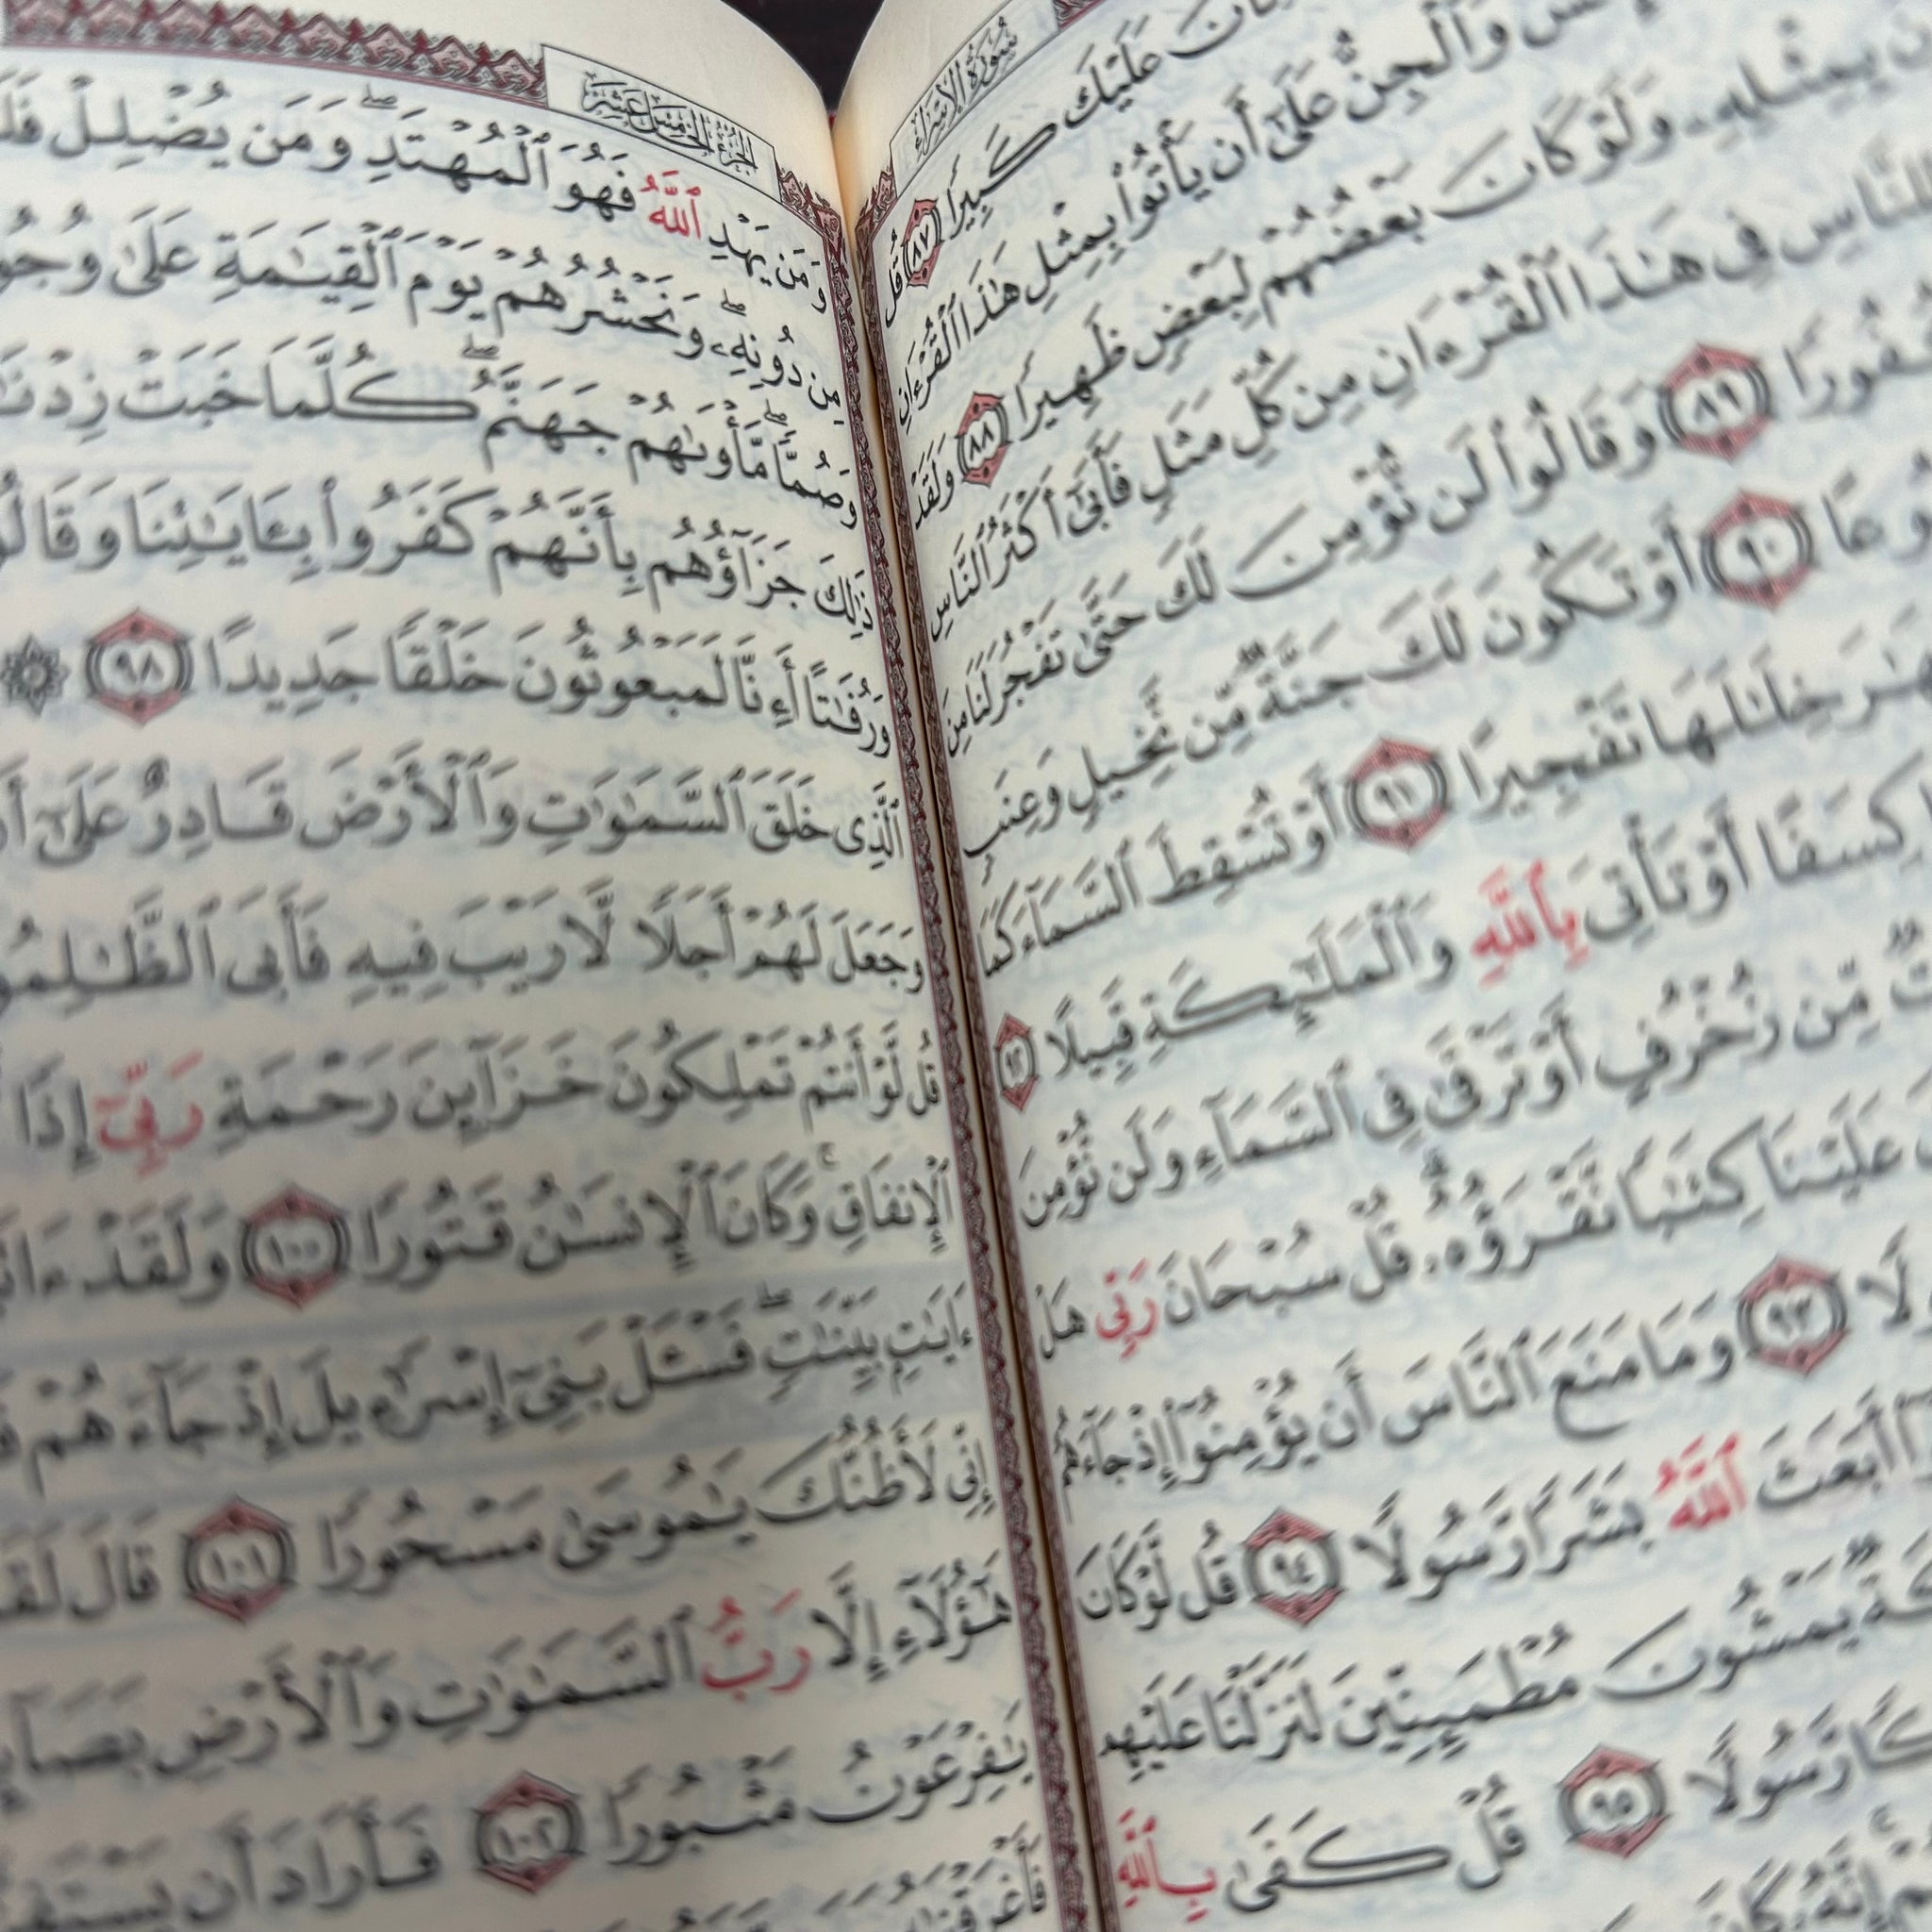 سُورَةُ الإِسْرَاءِ
عَلَيْكَ كَبِيرًا ٨٧ قُل
وَٱلْجِنُّ عَلَىٰٓ أَن يَأْتُوا۟ بِمِثْلِ هَٰذَا ٱلْقُرْءَانِ
بِمِثْلِهِۦ وَلَوْ كَانَ بَعْضُهُمْ لِبَعْضٍ ظَهِيرًا ٨٨ وَلَقَدْ
لِلنَّاسِ فِى هَٰذَا ٱلْقُرْءَانِ مِن كُلِّ مَثَلٍ فَأَبَىٰٓ أَكْثَرُ ٱلنَّاسِ
كُفُورًا ٨٩ وَقَالُوا۟ لَن نُّؤْمِنَ لَكَ حَتَّىٰ تَفْجُرَ لَنَا مِنَ
٩٠ أَوْ تَكُونَ لَكَ جَنَّةٌ مِّن نَّخِيلٍ وَعِنَبٍ
خِلَٰلَهَا تَفْجِيرًا ٩١ أَوْ تُسْقِطَ ٱلسَّمَآءَ كَمَا
كِسَفًا أَوْ تَأْتِىَ بِٱللَّهِ وَٱلْمَلَٰٓئِكَةِ قَبِيلًا ٩٢
مِّن زُخْرُفٍ أَوْ تَرْقَىٰ فِى ٱلسَّمَآءِ وَلَن نُّؤْمِنَ
عَلَيْنَا كِتَٰبًا نَّقْرَؤُهُۥ قُلْ سُبْحَانَ رَبِّى هَلْ
٩٣ وَمَا مَنَعَ ٱلنَّاسَ أَن يُؤْمِنُوٓا۟ إِذْ جَآءَهُمُ
أَبَعَثَ ٱللَّهُ بَشَرًا رَّسُولًا ٩٤ قُل لَّوْ كَانَ
يَمْشُونَ مُطْمَئِنِّينَ لَنَزَّلْنَا عَلَيْهِم
رَّسُولًا ٩٥ قُلْ كَفَىٰ بِٱللَّهِ
إِنَّهُۥ كَانَ
الجُزْءُ الخَامِسَ عَشَرَ
وَمَن يَهْدِ ٱللَّهُ فَهُوَ ٱلْمُهْتَدِ ۖ وَمَن يُضْلِلْ
مِن دُونِهِۦ ۖ وَنَحْشُرُهُمْ يَوْمَ ٱلْقِيَٰمَةِ عَلَىٰ
وَصُمًّا ۖ مَّأْوَىٰهُمْ جَهَنَّمُ ۖ كُلَّمَا خَبَتْ
ذَٰلِكَ جَزَآؤُهُم بِأَنَّهُمْ كَفَرُوا۟ بِـَٔايَٰتِنَا
وَرُفَٰتًا أَءِنَّا لَمَبْعُوثُونَ خَلْقًا جَدِيدًا ٩٨
ٱلَّذِى خَلَقَ ٱلسَّمَٰوَٰتِ وَٱلْأَرْضَ قَادِرٌ عَلَىٰٓ
وَجَعَلَ لَهُمْ أَجَلًا لَّا رَيْبَ فِيهِ فَأَبَى
قُل لَّوْ أَنتُمْ تَمْلِكُونَ خَزَآئِنَ رَحْمَةِ رَبِّىٓ إِذًا
ٱلْإِنفَاقِ ۚ وَكَانَ ٱلْإِنسَٰنُ قَتُورًا ١٠٠ وَلَقَدْ
ءَايَٰتٍۭ بَيِّنَٰتٍ ۖ فَسْـَٔلْ بَنِىٓ إِسْرَٰٓءِيلَ إِذْ جَآءَهُمْ
إِنِّى لَأَظُنُّكَ يَٰمُوسَىٰ مَسْحُورًا ١٠١ قَالَ
هَٰٓؤُلَآءِ إِلَّا رَبُّ ٱلسَّمَٰوَٰتِ وَٱلْأَرْضِ
يَٰفِرْعَوْنُ مَثْبُورًا ١٠٢ فَأَرَادَ أَن
فَأَغْرَقْنَٰهُ